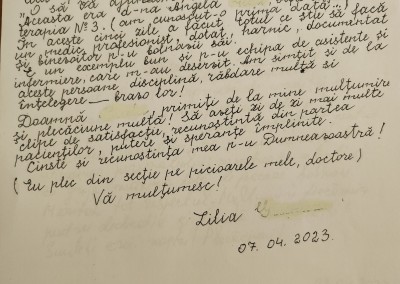 "O să vă
"Aceasta era d-na Angela
terapia N°3. (am cunoscut-o prima dată).
În aceste cinci zile a făcut totul ce știe să facă
un medic profesionist, dotat, harnic, documentat
și binevoitor p-u bolnavii săi.
E un exemplu bun și p-u echipa de asistente și
infirmiere, care m-au deservit. Am simțit și de la
aceste persoane, disciplină, răbdare multă și
înțelegere — bravo lor!
Doamnă , primiți de la mine mulțumire
și plecăciune multă! Să aveți zi de zi mai multe
clipe de satisfacție, recunoștință din partea
pacienților, putere și speranțe împlinite.
Cinste și recunoștința mea p-u Dumneavoastră!
(Eu plec din secție pe picioarele mele, doctore)
Vă mulțumesc!
Lilia
07.04.2023.